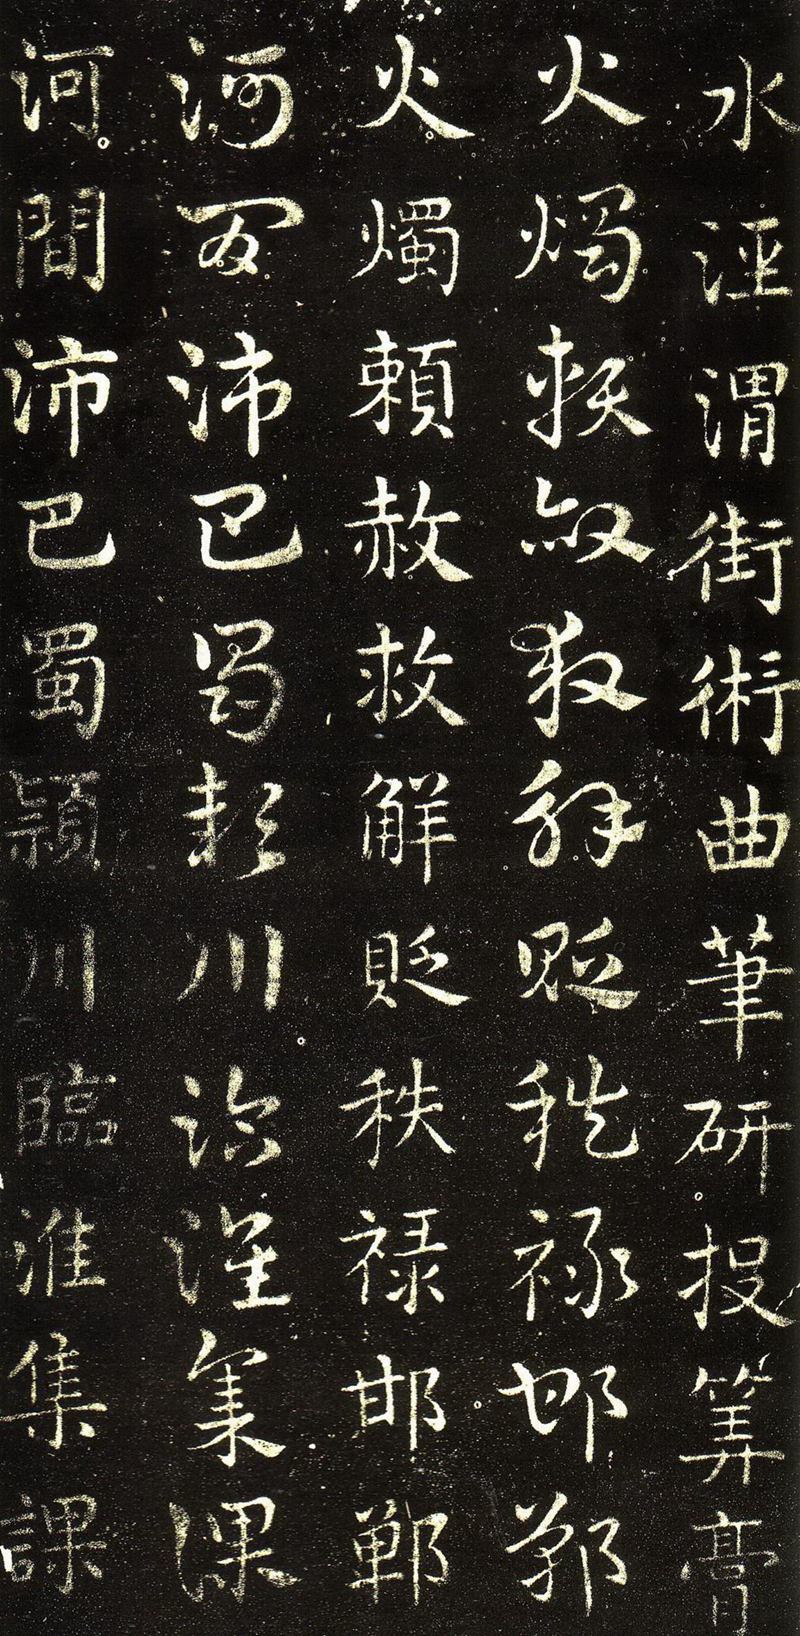 水涇渭街術曲筆研投筭膏
火燭賴赦救解貶秩祿邯鄲
火燭賴赦救解貶秩祿邯鄲
河間沛巴蜀潁川臨淮集課
河間沛巴蜀潁川臨淮集課